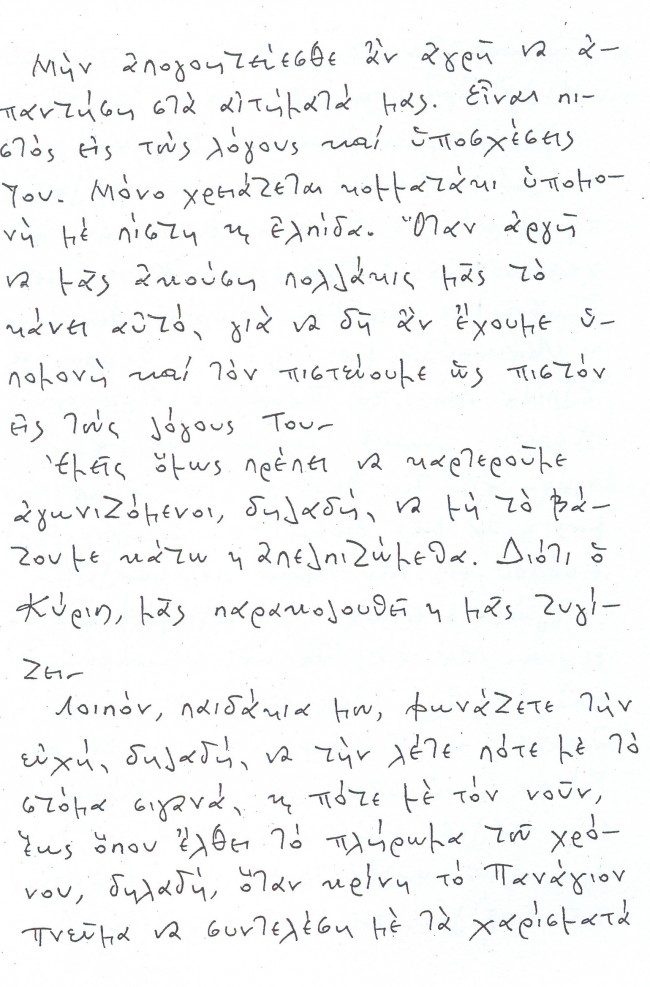 Μὴν ἀπογοητεύεσθε ἂν ἀργῆ νὰ ἀ-
παντήση στὰ αἰτήματά μας. εἶναι πι-
στὸς εἰς τοὺς λόγους καί ὑποσχέσεις
Του. Μόνο χρειάζεται κομματάκι ὑπομο-
νὴ μὲ πίστη κ ἐλπίδα. Ὅταν ἀργῆ
νὰ μᾶς ἀκούση πολλάκις μᾶς τὸ
κάνει αὐτό, γιὰ νὰ δῆ ἂν ἔχουμε ὑ-
πομονὴ καί τὸν πιστεύουμε ὡς πιστόν
εἰς τοὺς λόγους Του.
Ἐμεῖς ὅμως πρέπει νὰ καρτεροῦμε
ἀγωνιζόμενοι, δηλαδή, νὰ μὴ τὸ βά-
ζουμε κάτω κ ἀπελπιζώμεθα. Διότι ὁ
Κύριος, μᾶς παρακολουθεῖ κ μᾶς ζυγί-
ζει.
Λοιπόν, παιδάκια μου, φωνάζετε τὴν
εὐχή, δηλαδή, νὰ τὴν λέτε πότε μὲ τὸ
στόμα σιγανά, κ πότε μὲ τὸν νοῦν,
ἕως ὅπου ἔλθει τὸ πλήρωμα τοῦ χρό-
νου, δηλαδή, ὅταν κρίνη τὸ Πανάγιον
Πνεῦμα νὰ συντελέση μὲ τὰ χαρίσματά